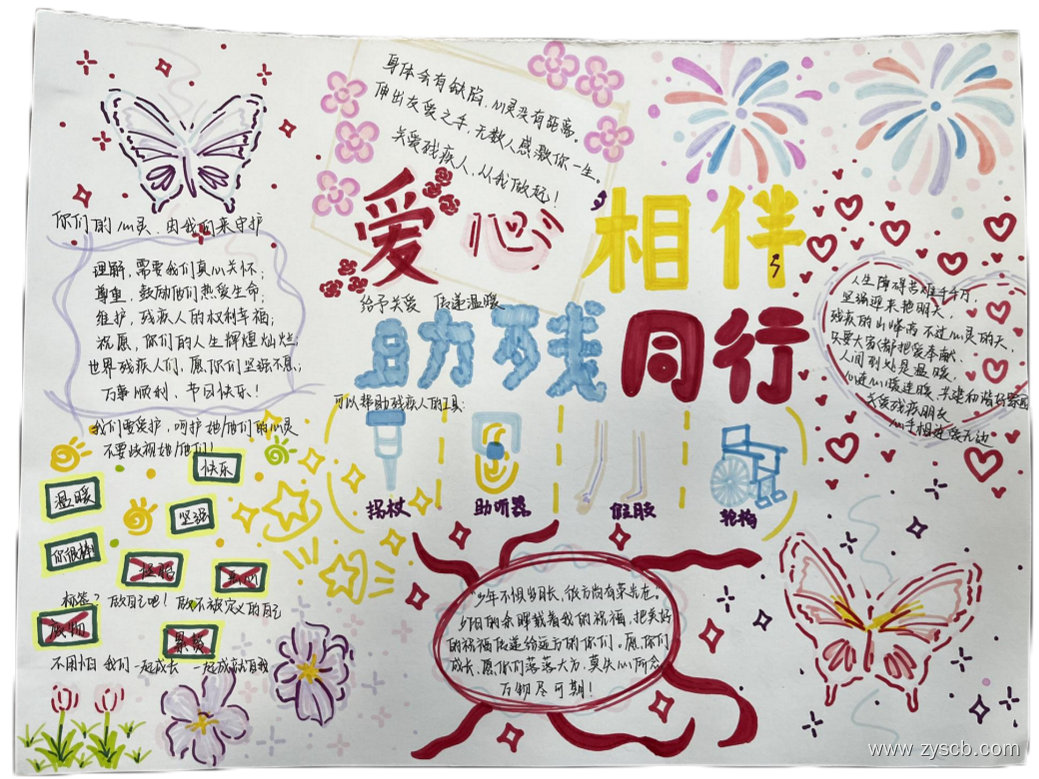 身体会有缺陷,心灵没有距离。
伸出友爱之手,无数人感激你一生。
关爱残疾人,从我做起!
爱心相伴
给予关爱 传递温暖
助残同行
你们的心灵,由我们来守护
理解,需要我们真心关怀;
尊重,鼓励他们热爱生命;
维护,残疾人的权利幸福;
祝愿,你们的人生辉煌灿烂;
世界残疾人们,愿你们坚强不息;
万事顺利,节日快乐!
我们要爱护,呵护她/他们的心灵
不要歧视她/他们!
快乐
温暖
坚强
你很棒
废物
累赘
标签?放自己吧!做不被定义的自己
不用怕 我们一起成长 一起成就自我
可以帮助残疾人的工具:
拐杖
助听器
假肢
轮椅
人生障碍苦难千千万,
坚强迎来艳明天,
残疾的山峰高不过心灵的天,
只要大家都把爱奉献,
人间到处是温暖,
心连心暖连暖,共建和谐好家园
关爱残疾朋友
心手相连爱无边
"少年不惧岁月长,彼方尚有荣光在。
夕阳的余晖载着我的祝福,把美好
的祝福传递给远方的你们,愿你们
成长,愿你们落落大方,
万物尽可期!
www.zyscb.com